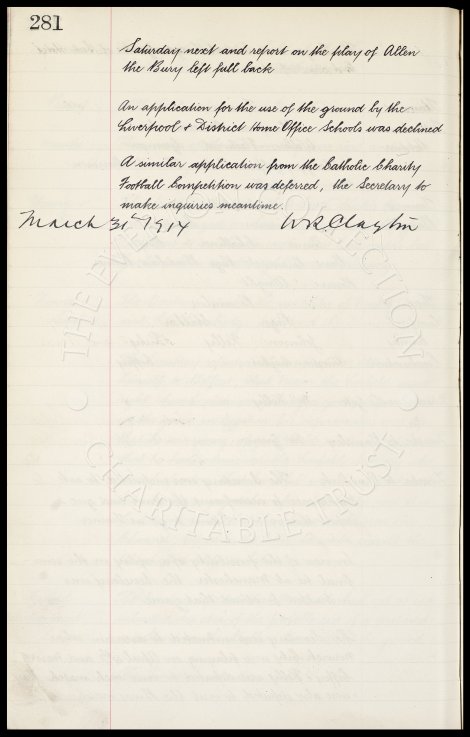 281
Saturday next and report on the play of Allen
the Bury left full back
An application for the use of the ground by the
Liverpool & District Home Office Schools was declined
A similar application from the Catholic Charity
Football Competition was deferred, the Secretary to
make inquiries meantime.
March 31st 1914 W. R. Clayton
THE EVERTON COLLECTION
CHARITABLE TRUST